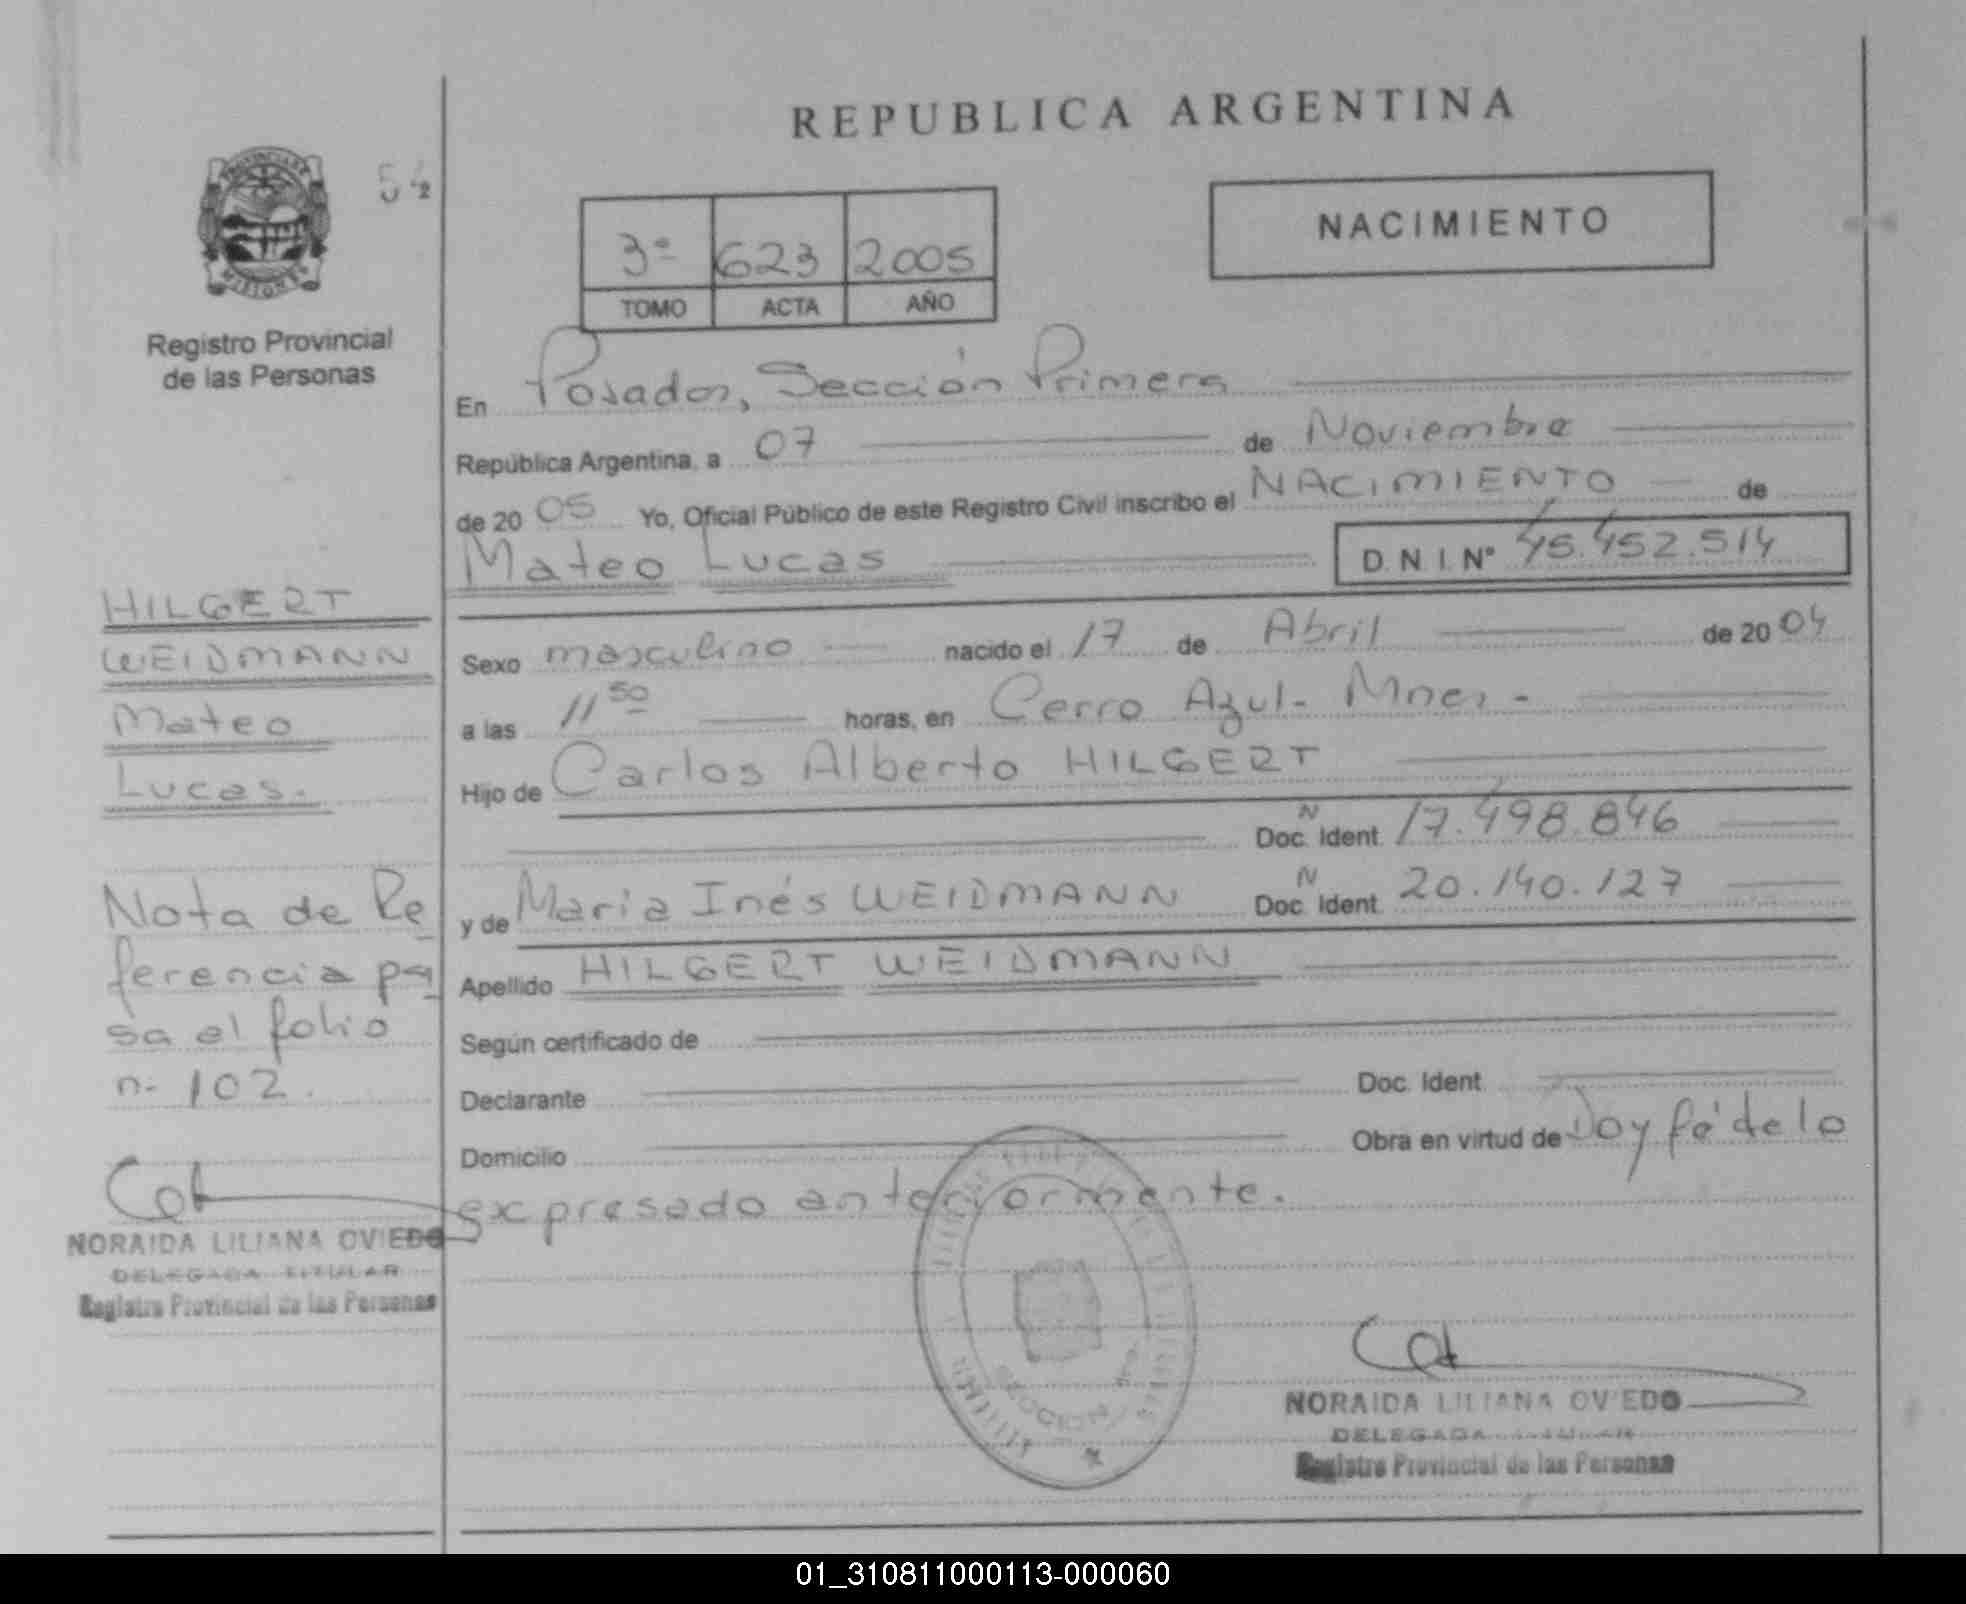 REPUBLICA ARGENTINA
PROVINCIA DE
MISIONES
54
Registro Provincial
de las Personas
3º 623 2005
TOMO ACTA AÑO
NACIMIENTO
En Posadas, Sección Primera
República Argentina, a 07 de Noviembre
de 20 05 Yo, Oficial Público de este Registro Civil inscribo el NACIMIENTO de
Mateo Lucas D. N. I. Nº 45.452.514
HILGERT
WEIDMANN
Mateo
Lucas.
Sexo masculino nacido el 17 de Abril de 20 04
a las 11 50 horas, en Cerro Azul- Mnes -
Hijo de Carlos Alberto HILGERT
N
Doc. Ident. 17.498.846
N
y de Maria Inés WEIDMANN Doc. Ident. 20.140.127
Apellido HILGERT WEIDMANN
Según certificado de
Declarante Doc. Ident.
Domicilio Obra en virtud de Doy fé de lo
expresado anteriormente.
Nota de Re
ferencia pa
sa el folio
n- 102.
NORAIDA LILIANA OVIEDO
DELEGADA TITULAR
Registro Provincial de las Personas
SECCION
NORAIDA LILIANA OVIEDO
DELEGADA TITULAR
Registro Provincial de las Personas
01_310811000113-000060